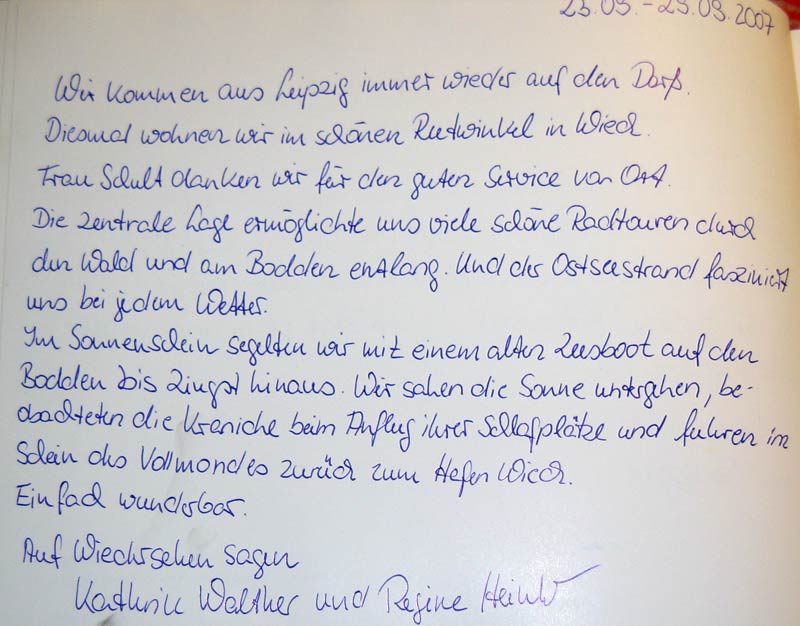 23.09. - 29.09.2007
Wir kommen aus Leipzig immer wieder auf den Darß.
Diesmal wohnen wir im schönen Rietwinkel in Wieck.
Frau Schult danken wir für den guten Service vor Ort.
Die zentrale Lage ermöglichte uns viele schöne Radtouren durch
den Wald und am Bodden entlang. Und der Ostseestrand fasziniert
uns bei jedem Wetter.
Im Sonnenschein segelten wir mit einem alten Zeesboot auf den
Bodden bis Zingst hinaus. Wir sahen die Sonne untergehen, be-
obachteten die Kraniche beim Anflug ihrer Schlafplätze und fuhren im
Schein des Vollmondes zurück zum Hafen Wieck.
Einfach wunderbar.
Auf Wiedersehen sagen
Kathrin Walther und Regine